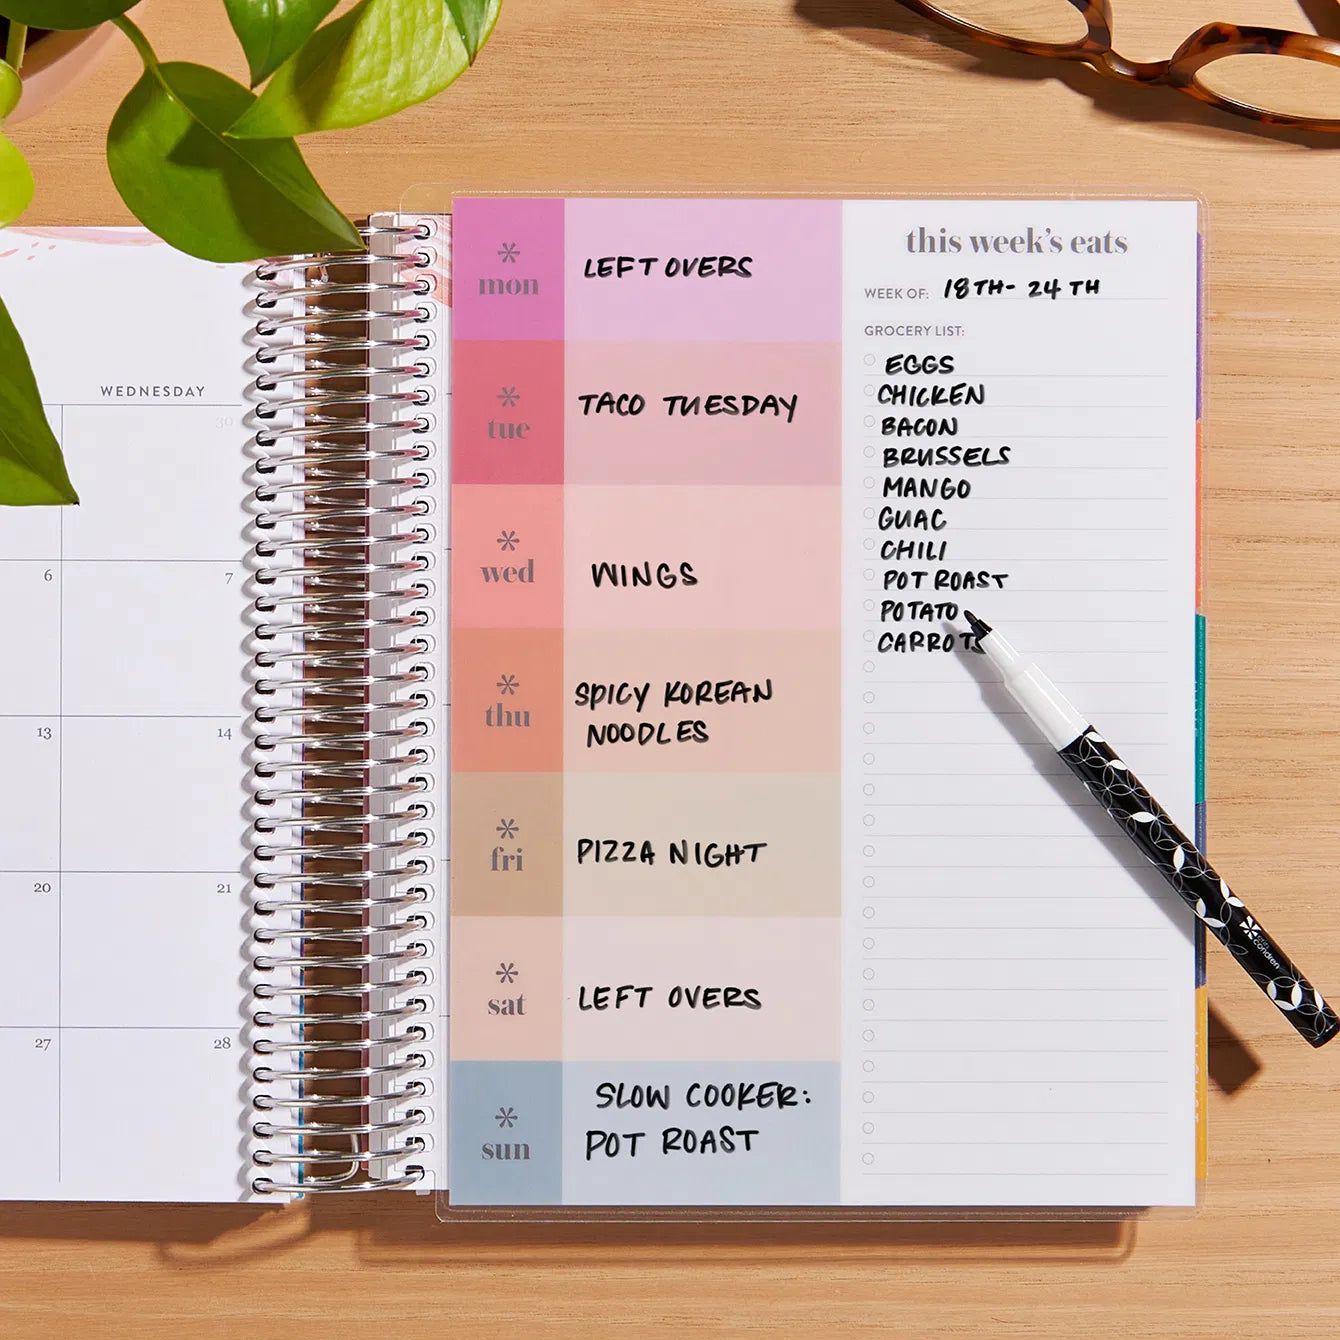 WEDNESDAY
30
6
7
13
14
20
21
27
28
*
mon
LEFT OVERS
*
tue
TACO TUESDAY
*
wed
WINGS
*
thu
SPICY KOREAN
NOODLES
*
fri
PIZZA NIGHT
*
sat
LEFT OVERS
*
sun
SLOW COOKER:
POT ROAST
this week's eats
WEEK OF: 18TH- 24 TH
GROCERY LIST:
EGGS
CHICKEN
BACON
BRUSSELS
MANGO
GUAC
CHILI
POT ROAST
POTATO
CARROTS
condren